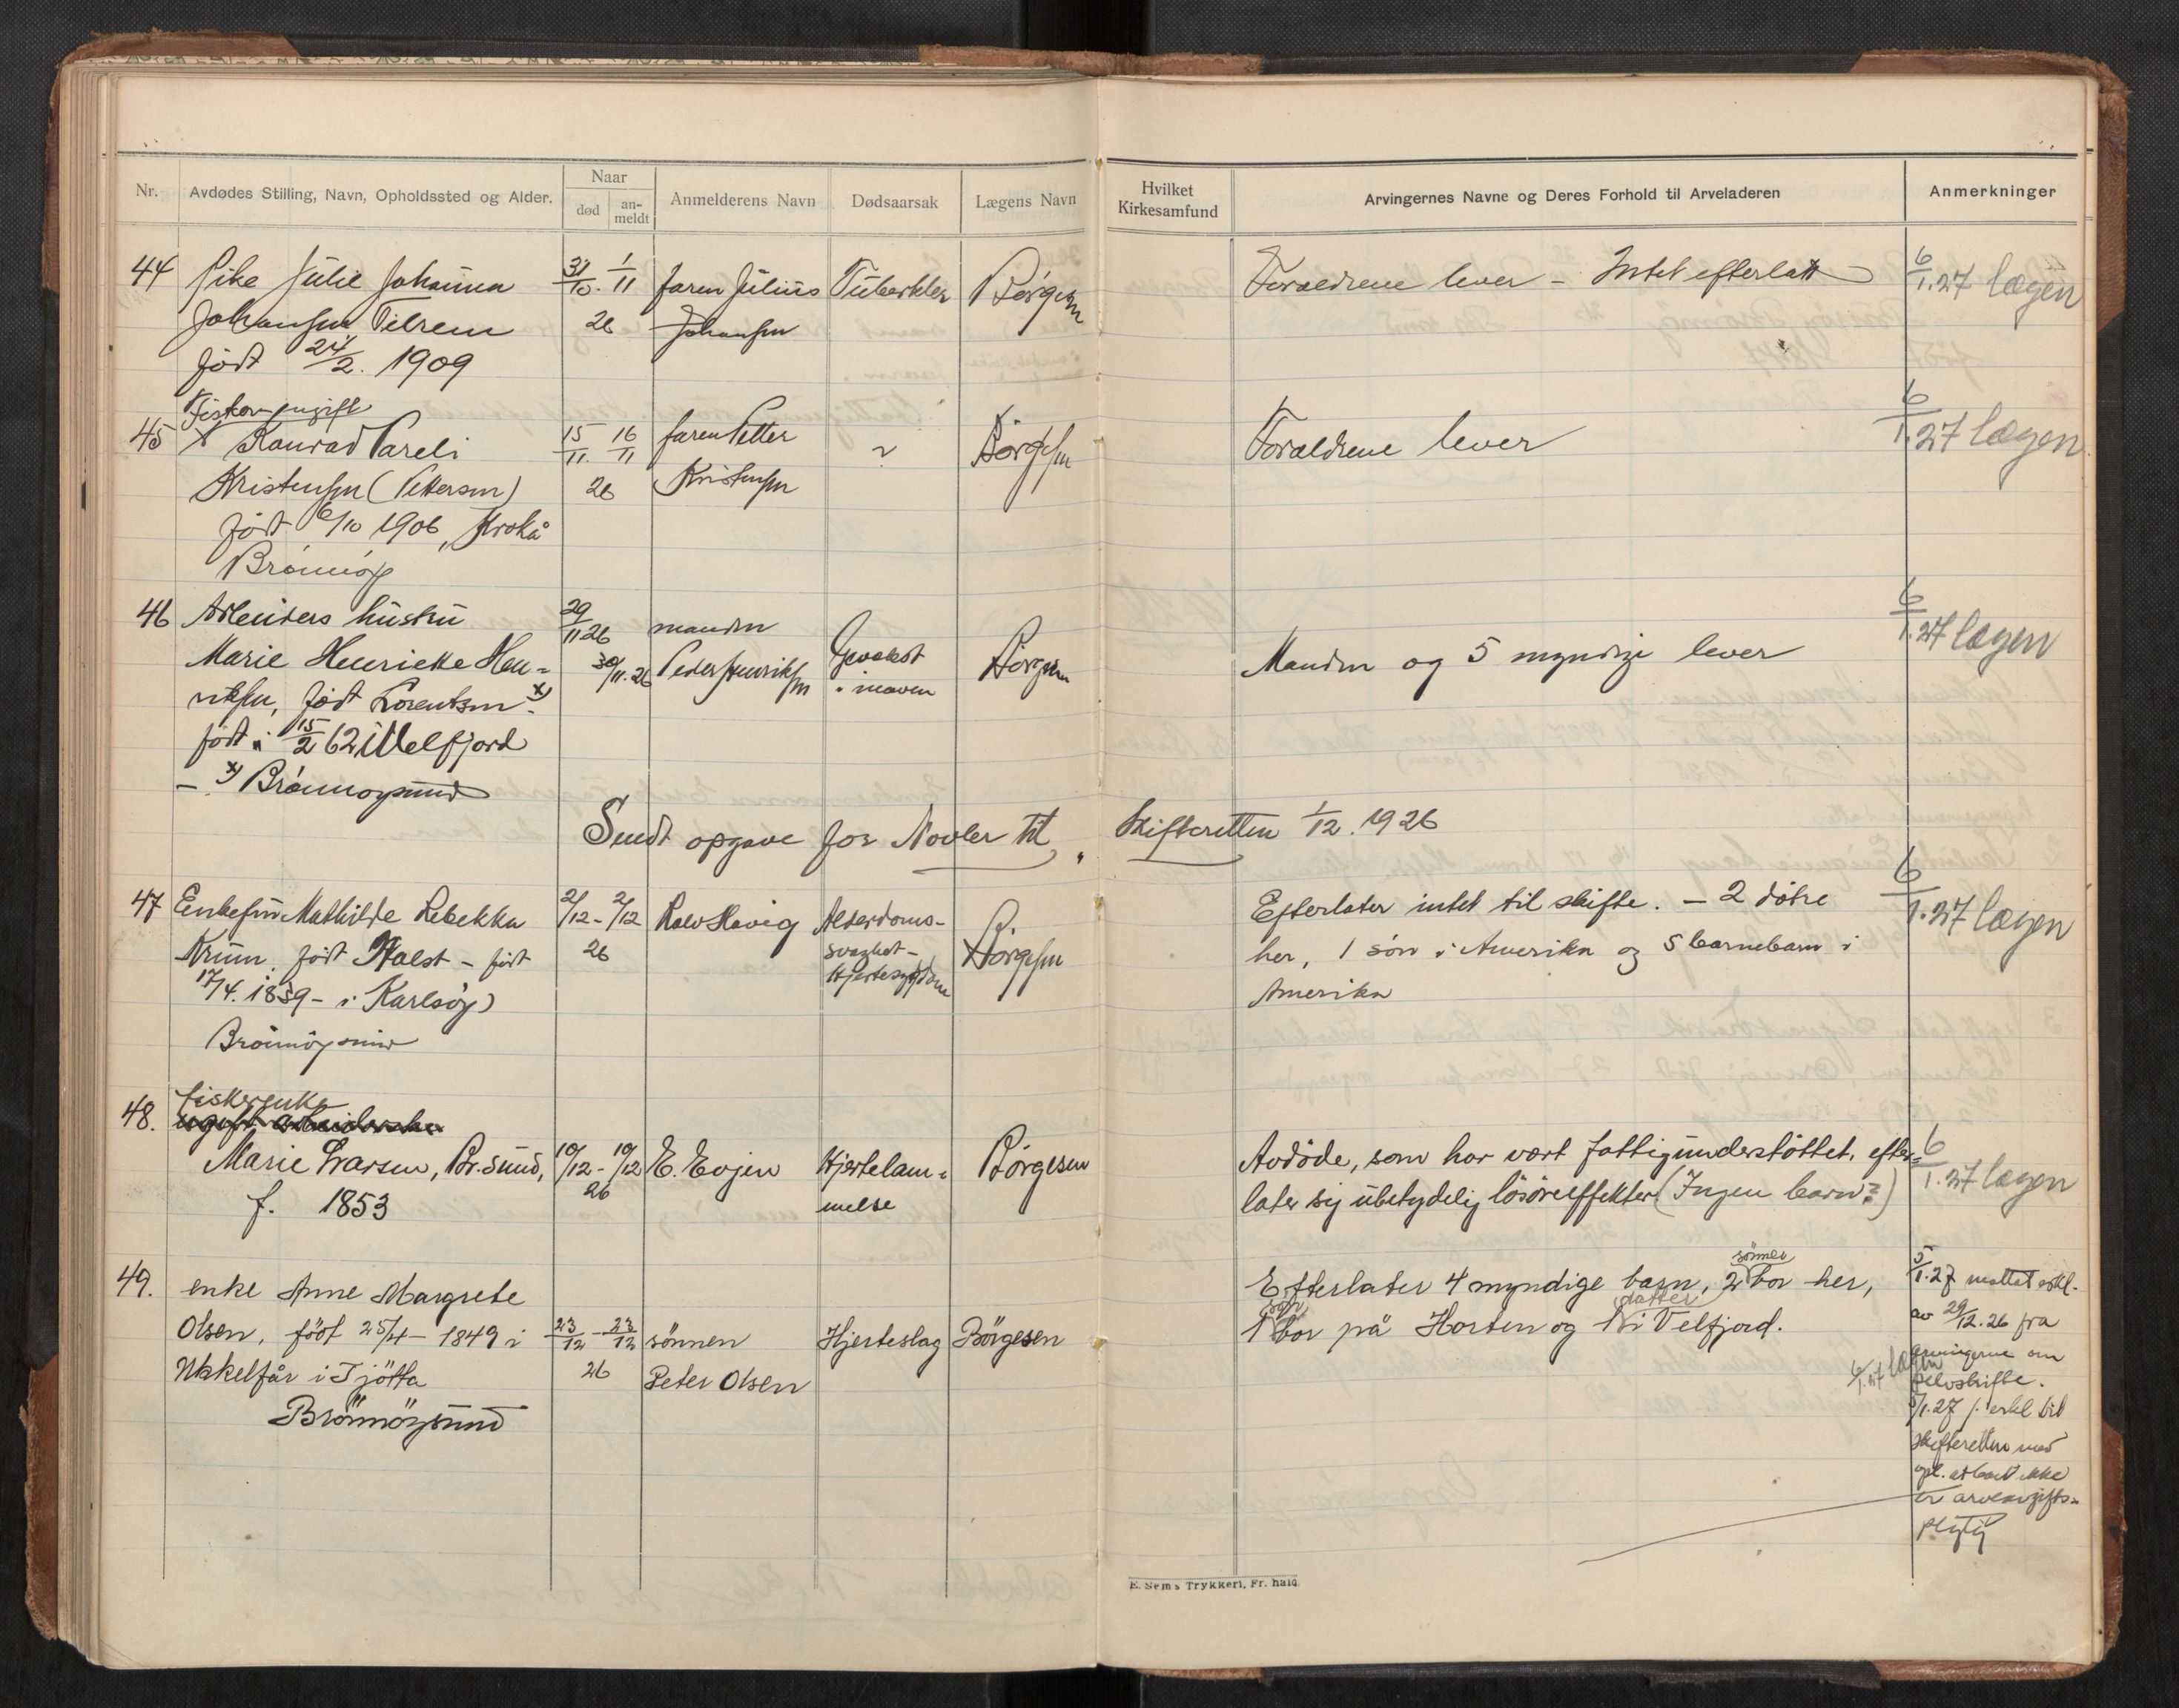 Nr.
Avdødes Stilling, Navn, Opholdssted og Alder.
Naar
død
an-
meldt
Anmelderens Navn
Dødsaarsak
Lægens Navn
Hvilket
Kirkesamfund
Arvingernes Navne og Deres Forhold til Arveladeren
Anmerkninger
44 Pike Julie Johanna
Johansen Tilrem
født 24/2. 1909
31/10. 1/11
26
faren Julius
Johansen
Tuberkler
Börgesen
Foraeldrene lever - Intet efterlatt
6/1.27 lægen
Fisker ugift
45 Konrad Pareli
Kristensen (Pettersen)
født 6/10 1906, Krokå
Brönnöy
15/11. 16/11
26
faren Petter
Kristensen
?
Börgesen
Foraeldrene lever
6/1.27 lægen
46 Arbeiders hustru
Marie Henrikke Hen-
riksen, født Lorentsen x)
født i 15/2 62 i Velfjord
- x) Brönnöysund
29/11 26
30/11.26
manden
Peder Henriksen
Gevekst
i maven
Börgesen
Manden og 5 myndige lever
6/1.27 lægen
Sendt opgave for Novbr til Skifteretten 1/12. 1926
47 Enkefru Mathilde Rebekka
Krum, født Holst - født
17/4. 1839 - i Karlsöy)
Brönnöysund
2/12 - 2/12
26
Halv Havig
Alderdoms-
svaghet -
Hjertesygdom
Börgesen
Efterlater intet til skifte. - 2 døtre
her, 1 søn i Amerika og 5 barnebarn i
Amerika
6/1.27 lægen
48. fiskerenke
ugift arbeiderske
Marie Larsen, Br.sund,
f. 1853
10/12 - 10/12
26
E. Evjen
Hjertelam-
melse
Börgesen
Avdöde, som har vært fattigunderstöttet, efter-
later sig ubetydelig lösöreeffekter (Ingen barn?)
6/1.27 lægen
49. enke Anne Margrete
Olsen, född 25/4 - 1849 i
Ukkelfår i Tjötta
Brönnöysund
23/12 - 23/12
26
sönnen
Peter Olsen
Hjerteslag
Börgesen
Efterlater 4 myndige barn, 2 sönner bor her,
1 søn bor på Horten og 1 datter i Velfjord.
5/1.27 mottat erkl.
av 29/12.26 fra
arvingerne om
selvskifte.
6/1.27 lægen
5/1.27 s. erkl til
skifteretten med
opl. at boet ikke
er arveavgifts-
pligtig
E. Sem's Trykkeri, Fr. hald.